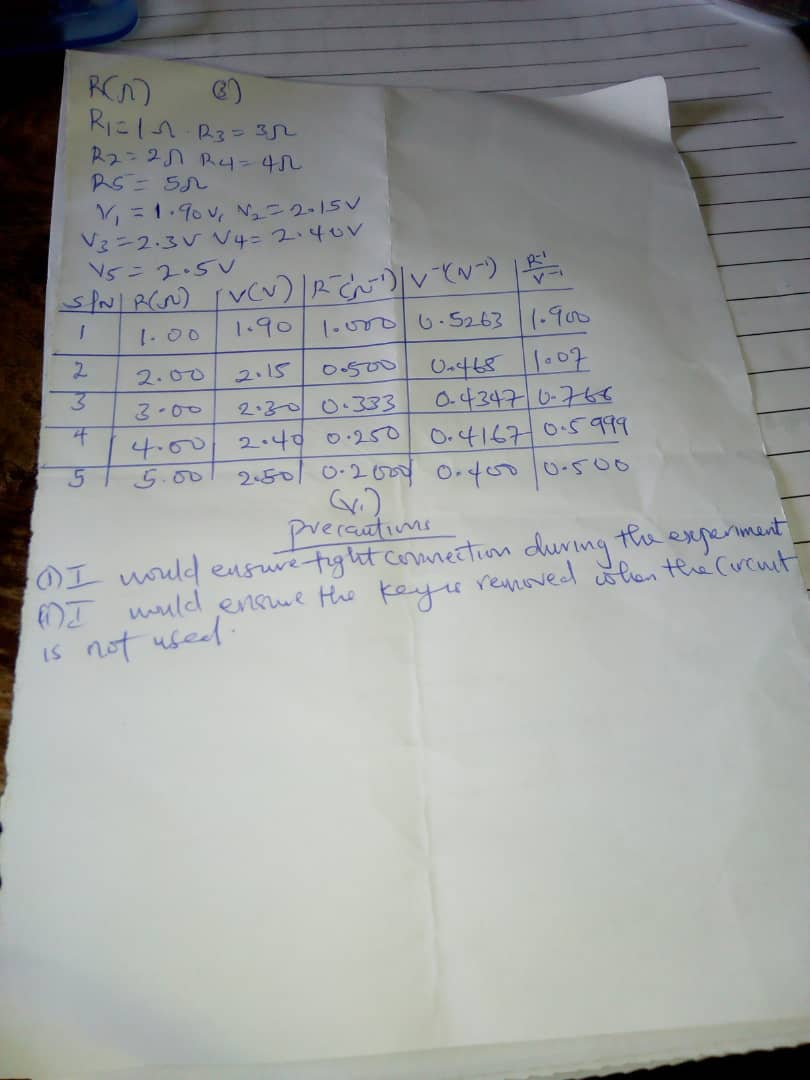 R(Ω) (3)
R1=1Ω R3=3Ω
R2=2Ω R4=4Ω
R5= 5Ω
V1=1.90V, V2=2.15V
V3=2.3V V4=2.40V
V5=2.5V
S/N R(Ω) V(V) R⁻¹(Ω⁻¹) V⁻¹(V⁻¹) R⁻¹/V⁻¹
1 1.00 1.90 1.000 0.5263 1.900
2 2.00 2.15 0.500 0.465 1.07
3 3.00 2.30 0.333 0.4347 0.766
4 4.00 2.40 0.250 0.4167 0.5999
5 5.00 2.50 0.2000 0.400 0.500
(V.)
Precautions
(i) I would ensure tight connection during the experiment
(ii) I would ensure the key is removed when the Circuit
is not used.